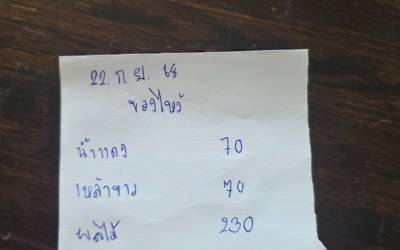 22. ก.ย. 68
ของไหว้
น้ำแดง 70
เหล้าขาว 70
ผลไม้ 230